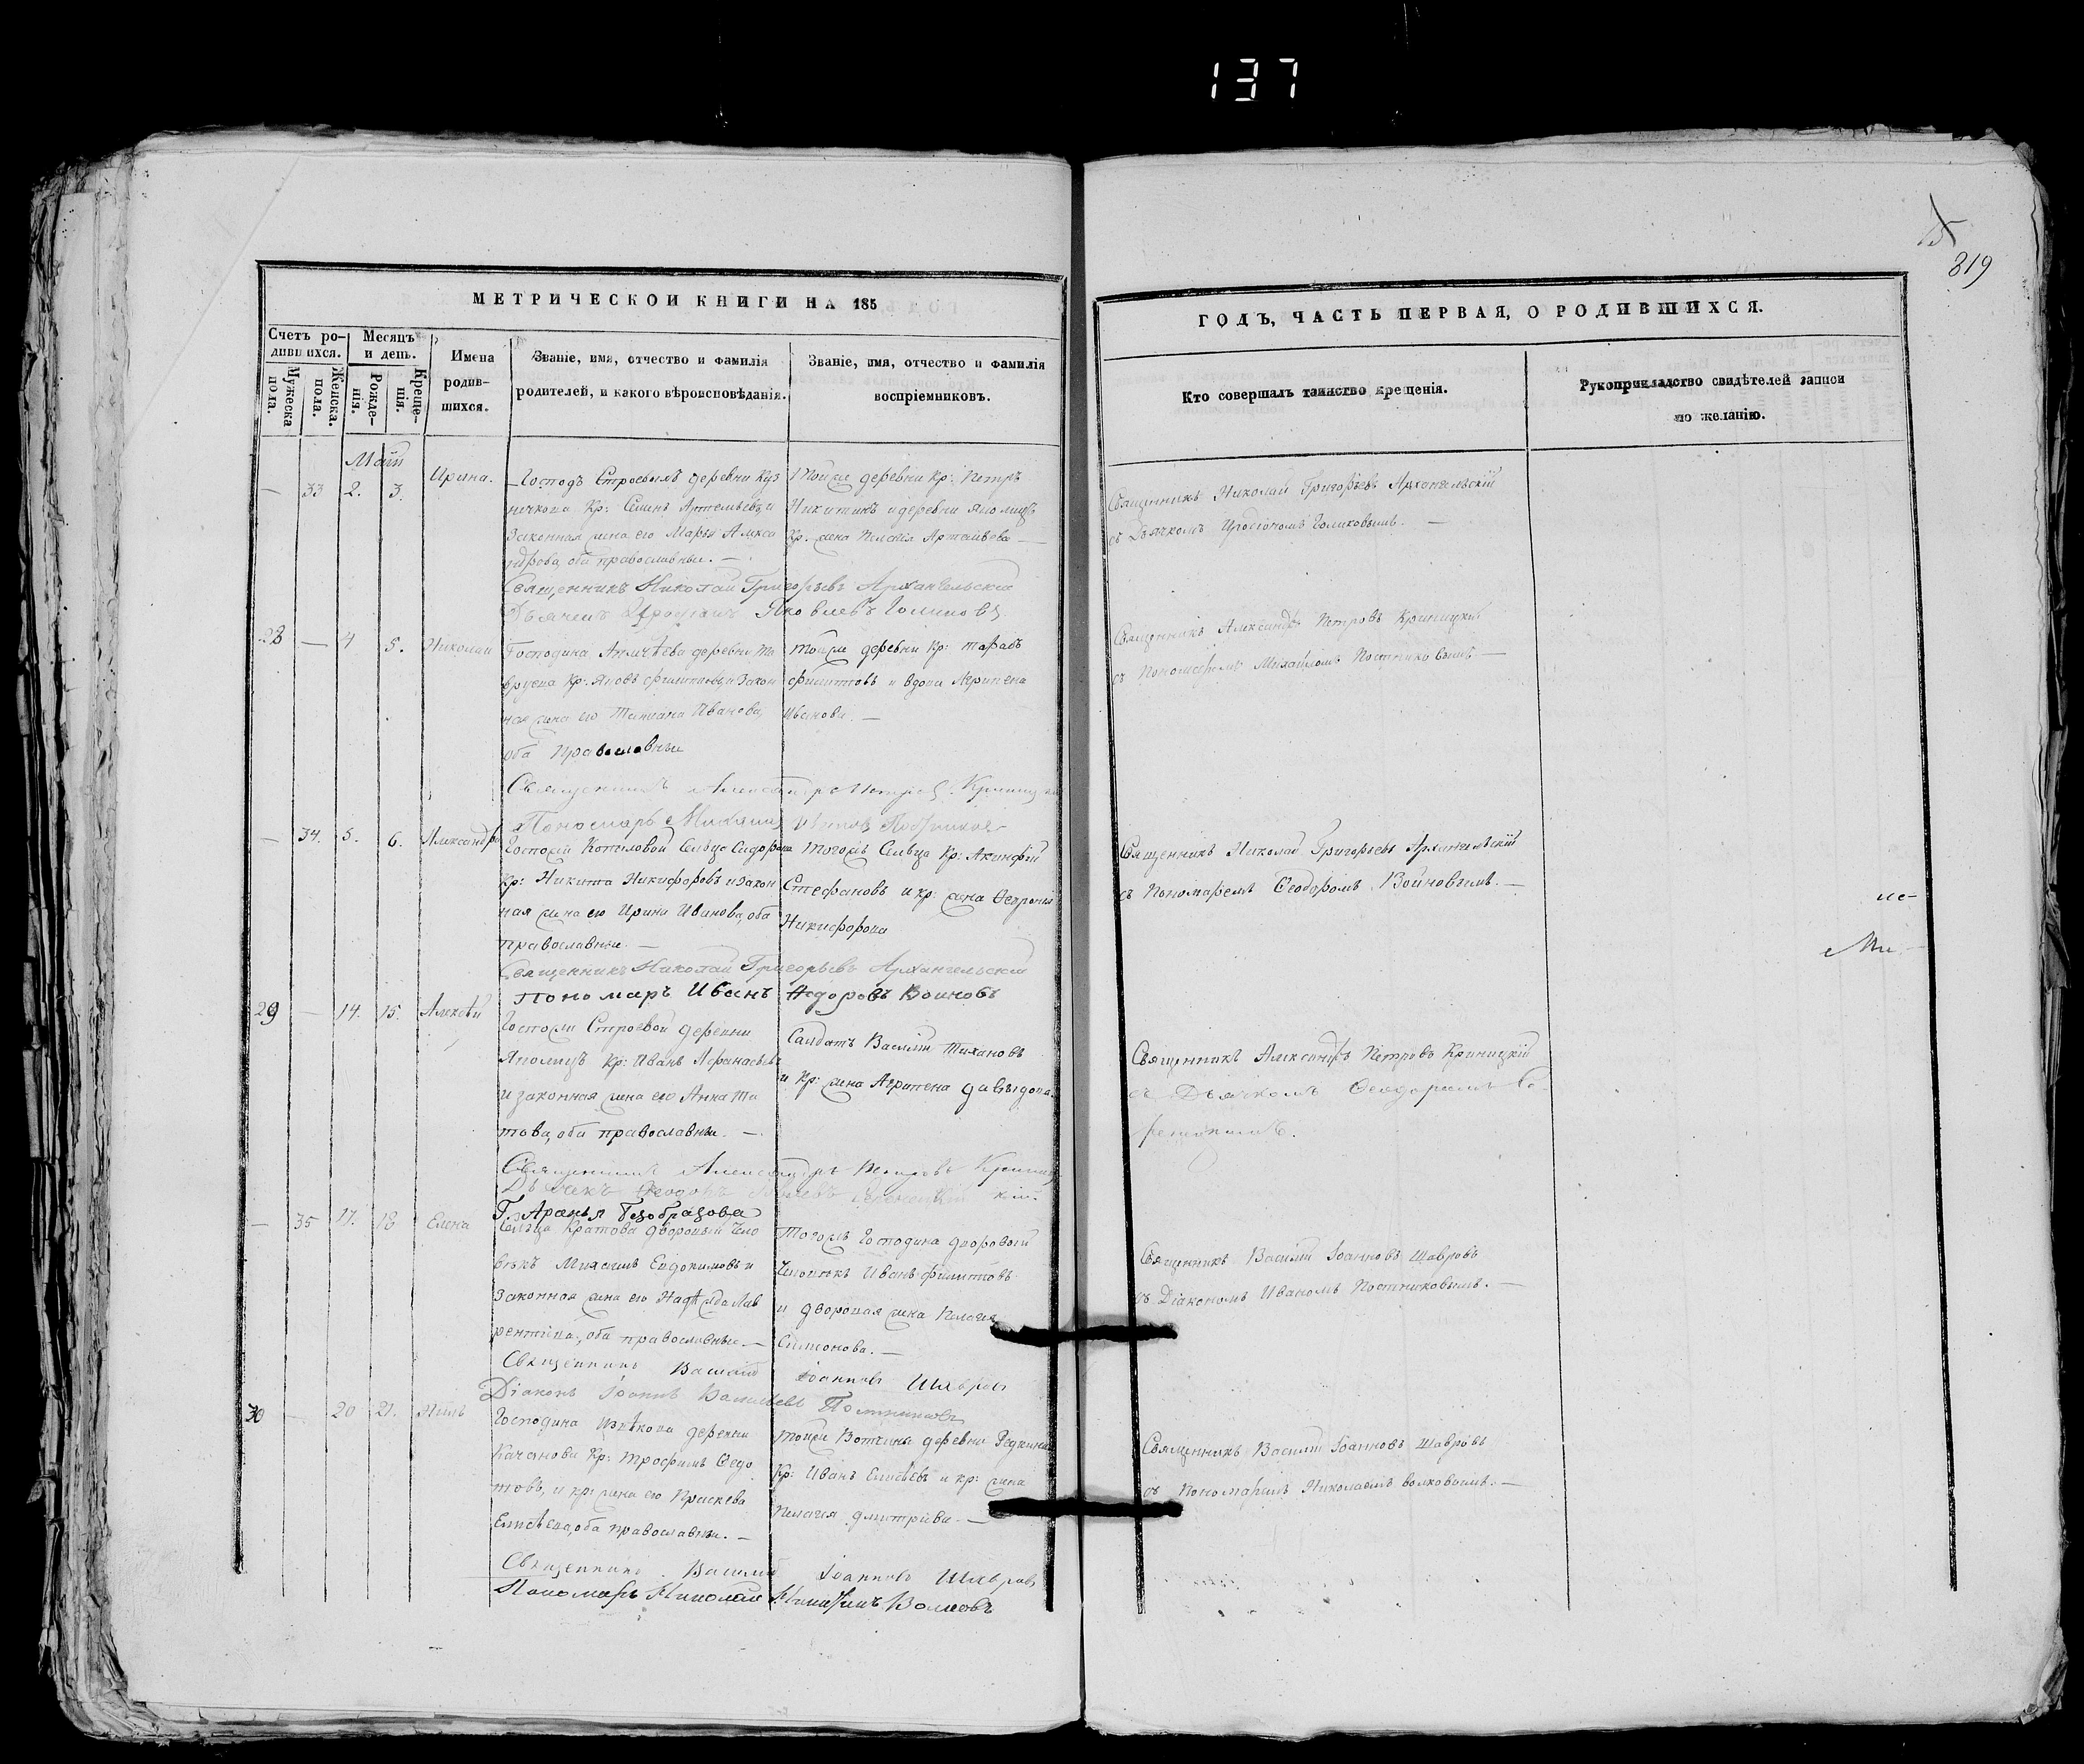 137
15
819
МЕТРИЧЕСКОЙ КНИГИ НА 185
Счетъ ро-
дившихся.
Мужеска
пола.
Женска.
пола.
Месяцъ
и день.
Рожде-
нія.
Креще-
нія.
Имена
родив-
шихся.
Званіе, имя, отчество и фамилія
родителей, и какого вѣроисповѣданія.
Званіе, имя, отчество и фамилія
воспріемниковъ.
ГОДЪ, ЧАСТЬ ПЕРВАЯ, О РОДИВШИХСЯ.
Кто совершалъ таинство крещенія.
Рукоприкладство свидѣтелей записи
по желанію.
Май
— 33 2. 3. Ирина.
Господъ Строевыхъ деревни
Кр: Семенъ Артемьевъ и
Законная жена его Марья Алекса
ндрова, оба православные. —
Тойже деревни Кр: Петръ
Никитинъ и деревни Яполицъ
Кр. жена Пелагія Артемьева —
Священникъ Николай Григорьевъ Архангельскій
съ Дьячкомъ Голиковымъ. —
Священникъ Николай Григорьевъ Архангельскій
Дьячекъ Яковлевъ Голиковъ
28 — 4 5. Николай
Господина деревни
Кр: Яковъ Филипповъ и Закон
ная жена его Татіана Иванова,
оба православные
тойже деревни Кр:
Филиповъ и вдова Агрипена
Иванова. —
Священникъ Александръ Петровъ Криницкій
съ Пономаремъ Михайломъ Постниковымъ —
Священникъ Александръ Петровъ Криницкій
Пономарь Михаилъ Постниковъ
— 34. 5. 6. Александра
Госпожи Копыловой Сельца Сидорова
Кр: Никита Никифоровъ и Закон
ная жена его Ирина Иванова, оба
православные. —
тогожъ Сельца Кр: Акинфій
Стефановъ и кр: жена
Никифорова
Священникъ Николай Григорьевъ Архангельскій
съ Пономаремъ Ѳеодоромъ Войновымъ. —
Священникъ Николай Григорьевъ Архангельскій
Пономаръ Иванъ Ѳедоровъ Воиновъ
29 — 14. 15. Алексѣй
Госпожи Строевой деревни
Яполицъ Кр: Иванъ Афанасьевъ
и законная жена его Анна Ти
това, оба православные. —
Салдатъ Василій Тихановъ
и Кр: жена Агрипена Давыдова.
Священникъ Александръ Петровъ Криницкій
съ Дьячкомъ Ѳеодоромъ
Священникъ Александръ Петровъ Криницкій
Дьячекъ Ѳеодоръ
— 35 17. 18 Елена
Г. Безобразова
Сельца Кратова дворовый чело
вѣкъ Михаилъ Евдокимовъ и
Законная жена его Надежда Лав
рентьева, оба православные —
Тогожъ Господина дворовый
Человѣкъ Иванъ Филиповъ
и дворовая жена Пелагія
Симонова. —
Священникъ Василій Іоанновъ Шавровъ
съ Діакономъ Иваномъ Постниковымъ. —
Священникъ Василій Іоанновъ Шавровъ
Діаконъ Іоаннъ Васильевъ Постниковъ
30 — 20 21.
Господина деревни
Качанова Кр: Трофимъ Ѳедо
товъ, и кр: жена его Праскева
Елисѣева, оба православны. —
тойже Вотчины деревни Редкина
Кр: Иванъ Елисѣевъ и кр: жена
Пелагея Дмитріева. —
Священникъ Василій Іоанновъ Шавровъ
съ Пономаремъ Николаемъ Волковымъ. —
Священникъ Василій Іоанновъ Шавровъ
Пономарь Николай Никитинъ Волковъ